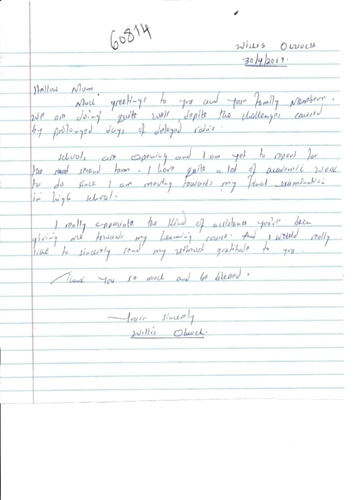 60814
Willis Obuoch
30/4/2019
Hallow Mum,
Much greetings to you and your family members.
We are doing quite well despite the challenges caused
by prolonged days of delayed rains.
Schools are opening and I am yet to report for
the second term. I have quite a lot of academic work
to do since I am moving towards my final examination
in high school.
I really appreciate the kind of assistance you've been
giving me towards my learning course. And I would really
like to sincerely send my utmost gratitude to you.
Thank you so much and be blessed.
Your sincerely
Willis Obuoch.